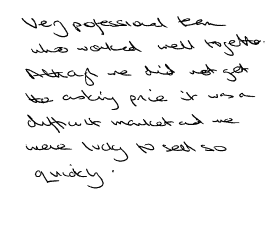 Very professional team
who worked well together.
Although we did not get
the asking price it was a
difficult market and we
were lucky to sell so
quickly.